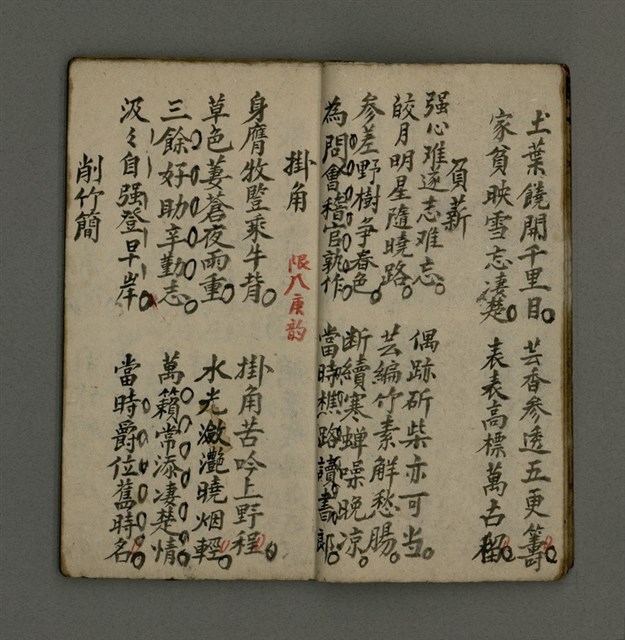 圡葉饒開千里目 芸香參透五更籌
家貧映雪忘淒楚 表表高標萬古留
負薪
强心难逐志难忘 偶跡斫柴亦可当
皎月明星隨曉路 芸編竹素解愁腸
参差野樹争春色 断續寒蝉噪晚凉
為問會稽官孰作 當時樵路讀書郎
掛角 限八庚韵
身膺牧豎乘牛背 掛角苦吟上野程
草色萋蒼夜雨重 水光瀲灔曉烟輕
三餘好助辛勤志 萬籟常添凄楚情
汲々自强登早岸 當時爵位舊時名
削竹簡